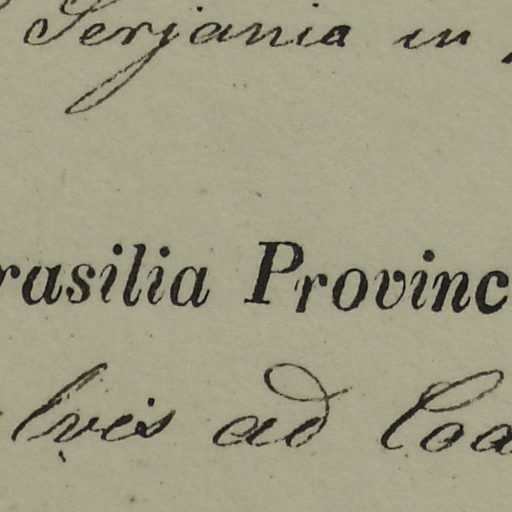 Serjania in
rasilia Provinc
lvis ad Coa